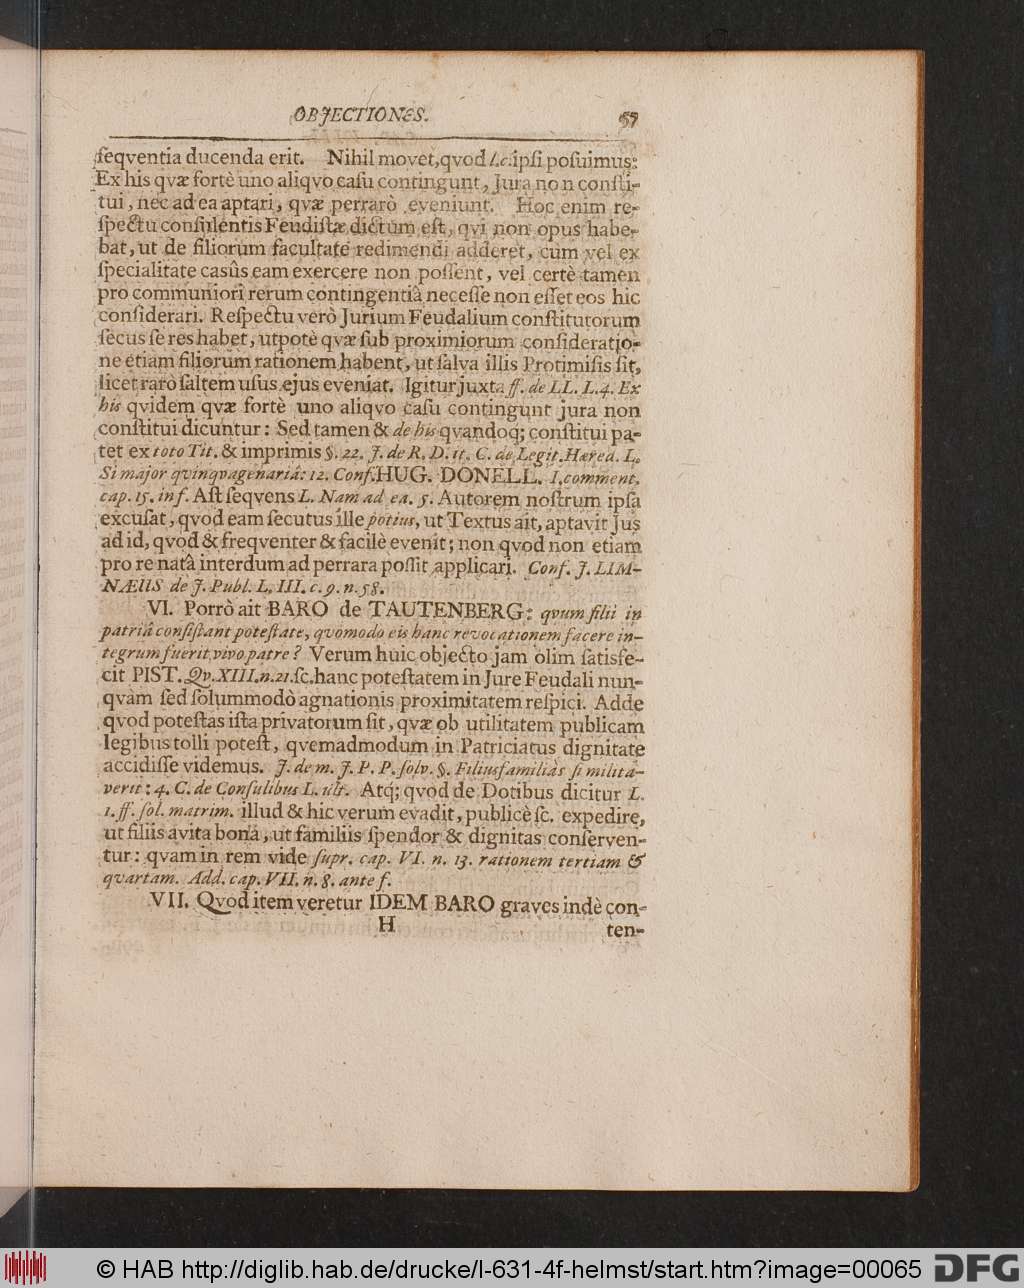 OBJECTIONES. 57
ſeqventia ducenda erit. Nihil movet, qvod l.c. ipſi poſuimus:
Ex his qvæ fortè uno aliqvo caſu contingunt, Jura non conſti-
tui, nec ad ea aptari, qvæ perrarò eveniunt. Hoc enim re-
ſpectu conſulentis Feudiſtæ dictum eſt, qvi non opus habe-
bat, ut de filiorum facultate redimendi adderet, cùm vel ex
ſpecialitate casûs eam exercere non poſſent, vel certè tamen
pro communiori rerum contingentiâ neceſſe non eſſet eos hic
conſiderari. Reſpectu verò Jurium Feudalium conſtitutorum
ſecus ſe res habet, utpotè qvæ ſub proximiorum conſideratio-
ne etiam filiorum rationem habent, ut ſalva illis Protimiſis ſit,
licet rarò ſaltem uſus ejus eveniat. Igitur juxta ff. de LL. L. 4. Ex
his qvidem qvæ fortè uno aliqvo caſu contingunt jura non
conſtitui dicuntur: Sed tamen & de his qvandoq; conſtitui pa-
tet ex toto Tit. & imprimis §. 22. J. de R. D. it. C. de Legit. Hæred. L.
Si major qvinqvagenariâ: 12. Conf. HUG. DONELL. 1. comment.
cap. 15. in f. Aſt ſeqvens L. Nam ad ea. 5. Autorem noſtrum ipſa
excuſat, qvod eam ſecutus ille potius, ut Textus ait, aptavit jus
ad id, qvod & freqventer & facilè evenit; non qvod non etiam
pro re natâ interdum ad perrara poſſit applicari. Conf. J. LIM-
NÆUS de J. Publ. L. III. c. 9. n. 58.
VI. Porrò ait BARO de TAUTENBERG: qvum filii in
patriâ conſiſtant poteſtate, qvomodo eis hanc revocationem facere in-
tegrum fuerit, vivo patre? Verum huic objecto jam olim ſatisfe-
cit PIST. Qv. XIII. n. 21. ſc. hanc poteſtatem in Jure Feudali nun-
qvàm ſed ſolummodò agnationis proximitatem reſpici. Adde
qvod poteſtas iſta privatorum ſit, qvæ ob utilitatem publicam
legibus tolli poteſt, qvemadmodum in Patriciatus dignitate
accidiſſe videmus. J. de m. J. P. P. ſolv. §. Filiusfamiliàs ſi milita-
verit: 4. C. de Conſulibus L. ult. Atq; qvod de Dotibus dicitur L.
1. ff. ſol. matrim. illud & hìc verum evadit, publicè ſc. expedire,
ut filiis avita bona, ut familiis ſpendor & dignitas conſerven-
tur: qvam in rem vide ſupr. cap. VI. n. 13. rationem tertiam &
qvartam. Add. cap. VII. n. 8. ante f.
VII. Qvod item veretur IDEM BARO graves indè con-
H ten-
© HAB http://diglib.hab.de/drucke/l-631-4f-helmst/start.htm?image=00065
DFG